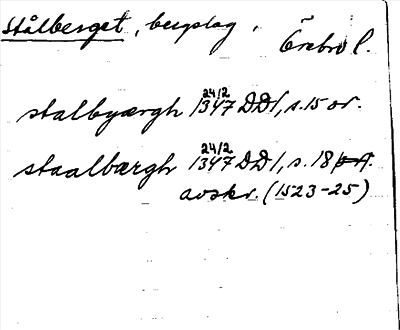 Stålberget, bergslag, Örebro l.
stalbyærgh 24/2 1347 DD 1, s. 15 or.
staalbærgh 24/2 1347 DD 1, s. 18
avskr. (1523-25)